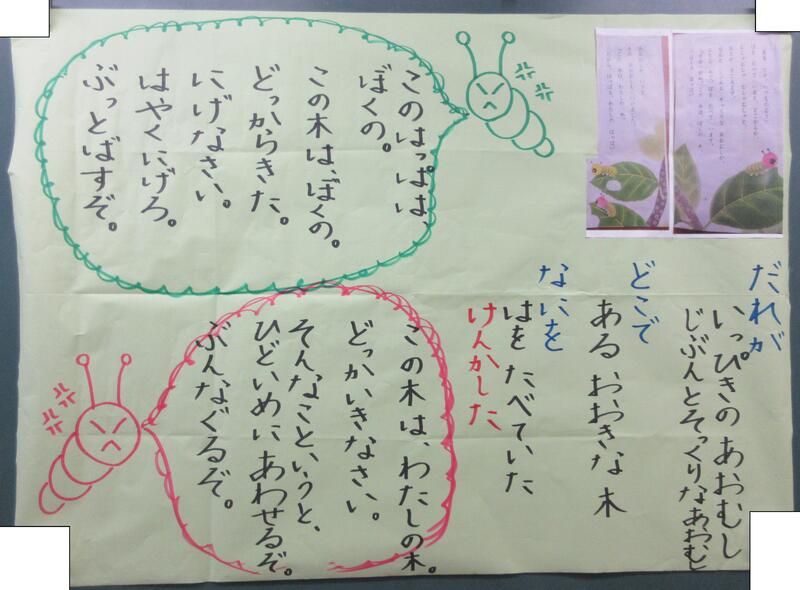 だれが
いっぴきの あおむし
じぶんとそっくりなあおむし
どこで
ある おおきな 木
なにを
はを たべていた
けんかした
このはっぱは、
ぼくの。
この木は、ぼくの。
どっからきた。
にげなさい。
はやくにげろ。
ぶっとばすぞ。
この木は、わたしの木。
どっかいきなさい。
そんなこというと、
ひどいめにあわせるぞ。
ぶんなぐるぞ。